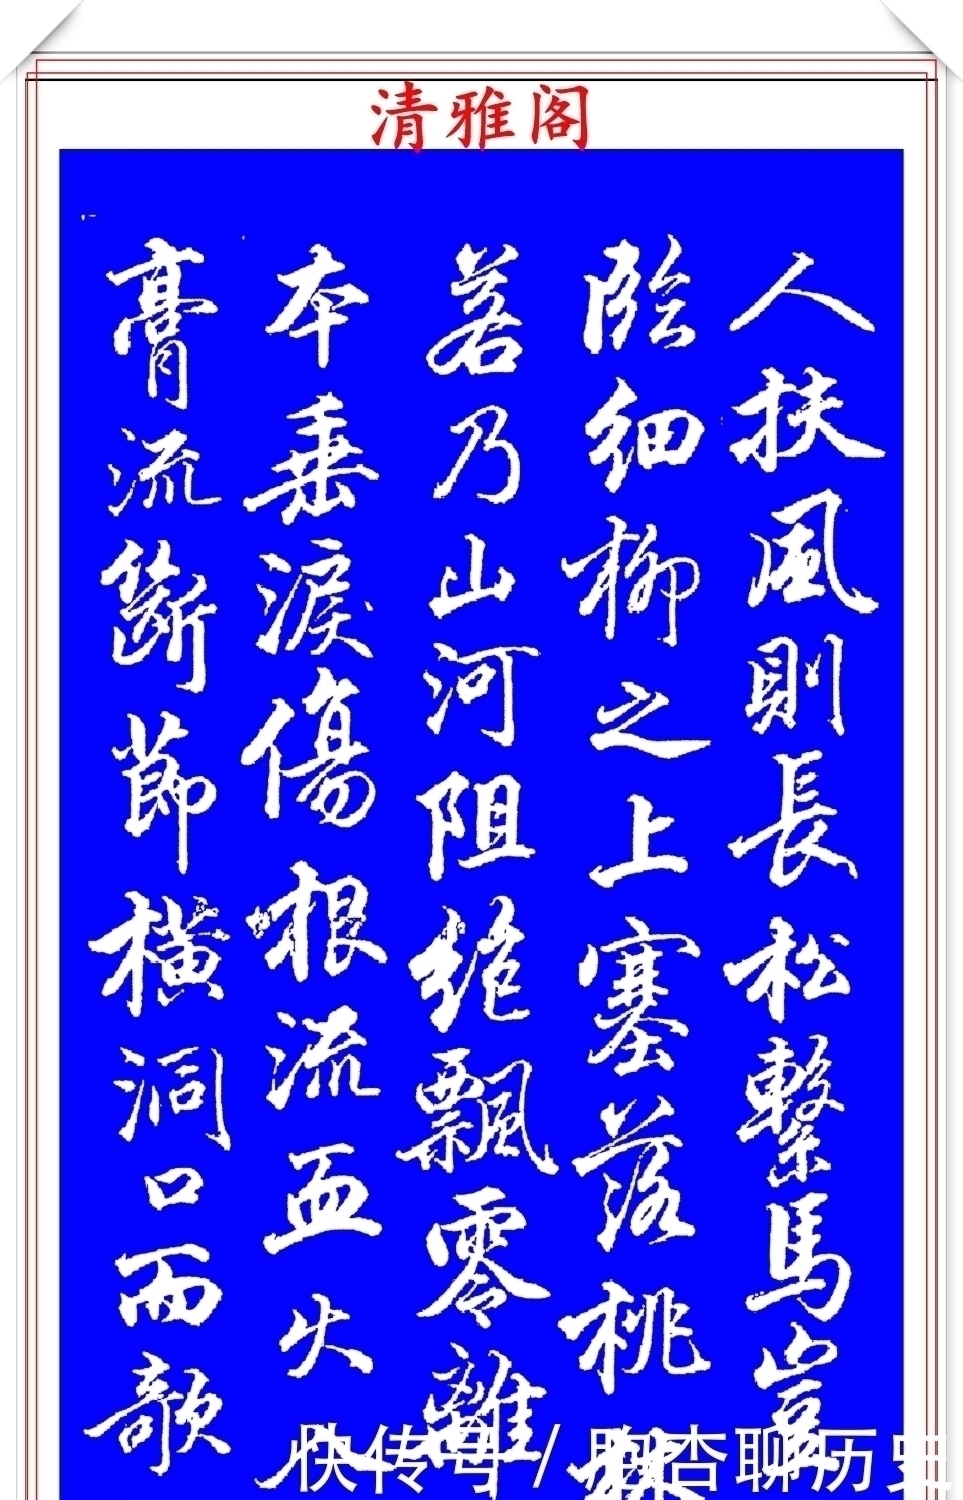 清雅阁
人扶風則長松繫馬豈
臨細柳之上塞落桃林
若乃山河阻絕飄零離
本垂淚傷根流血火入
膏流斷節橫洞口而欹
快传号 / 杏聊历史